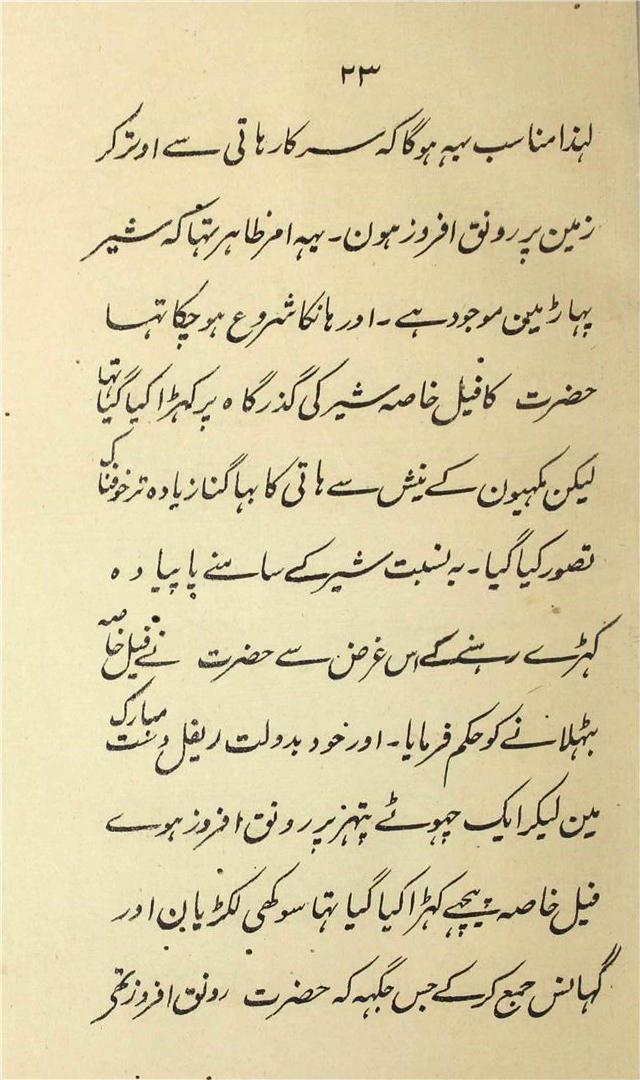 ۲۳
لہذا مناسب یہہ ہوگا کہ سرکار ہاتی سے اوتر کر
زمین پر رونق افروز ہون۔ یہہ امر ظاہر تہا کہ شیر
پہاڑ مین موجود ہے۔ اور ہانکا شروع ہو چکا تہا
حضرت کا فیل خاصہ شیر کی گذرگاہ پر کہڑا کیا گیا تہا
لیکن مکہیون کے نیش سے ہاتی کا بہاگنا زیادہ تر خوفناک
تصور کیا گیا۔ بہ نسبت شیر کے سامنے پا پیادہ
کہڑے رہنے کے اس غرض سے حضرت نے فیل خاصہ
بٹہلانے کو حکم فرمایا۔ اور خود بدولت ریفل دست مبارک
مین لیکر ایک چہوٹے پتہر پر رونق افروز ہوے
فیل خاصہ پیچہے کہڑا کیا گیا تہا سوکھی لکڑیان اور
گہانس جمع کر کے جس جگہہ کہ حضرت رونق افروز تھے